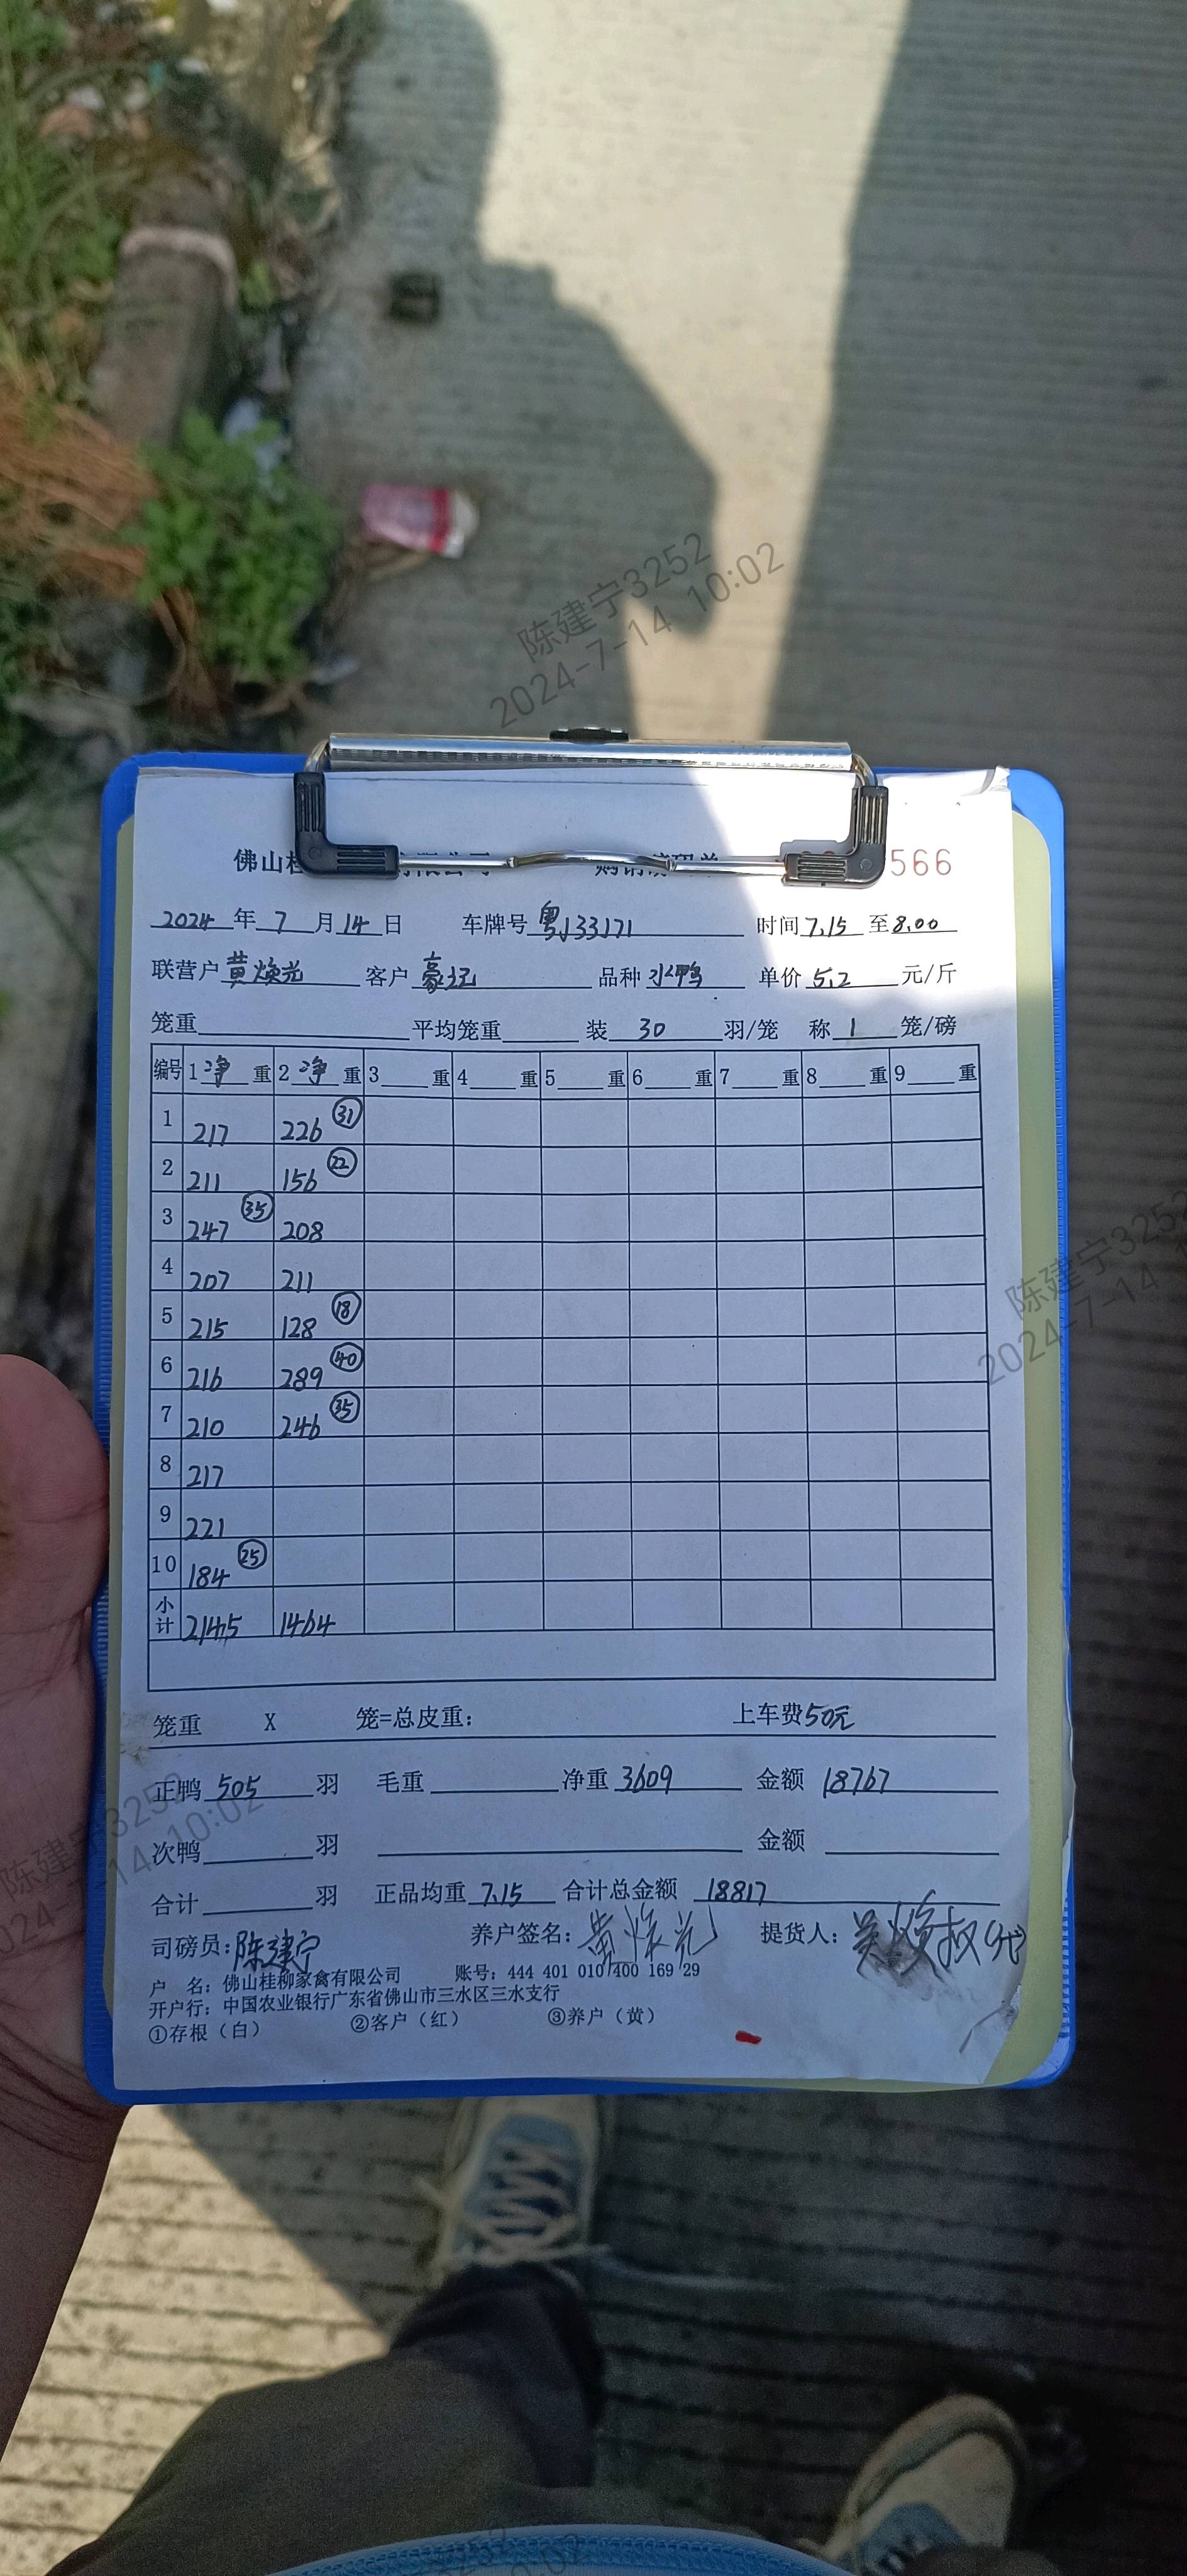 陈建宁3252
2024-7-14 10:02
佛山桂 566
2024 年 7 月 14 日 车牌号 粤J33171 时间 7.15 至 8.00
联营户 黄焕光 客户 豪记 品种 水鸭 单价 5.2 元/斤
笼重 平均笼重 装 30 羽/笼 称 1 笼/磅
编号 1 净 重 2 净 重 3 重 4 重 5 重 6 重 7 重 8 重 9 重
1 217 226 31
2 211 156 22
3 247 35 208
4 207 211
5 215 128 18
6 216 289 40
7 210 246 35
8 217
9 221
10 184 25
小计 2145 1464
陈建宁3252
2024-7-14
笼重 X 笼=总皮重: 上车费50元
正鸭 505 羽 毛重 净重 3609 金额 18767
次鸭 羽 金额
合计 羽 正品均重 7.15 合计总金额 18817
司磅员:陈建宁 养户签名:黄焕光 提货人:
户 名: 佛山桂柳家禽有限公司 账号: 444 401 010 400 169 29
开户行: 中国农业银行广东省佛山市三水区三水支行
①存根（白） ②客户（红） ③养户（黄）